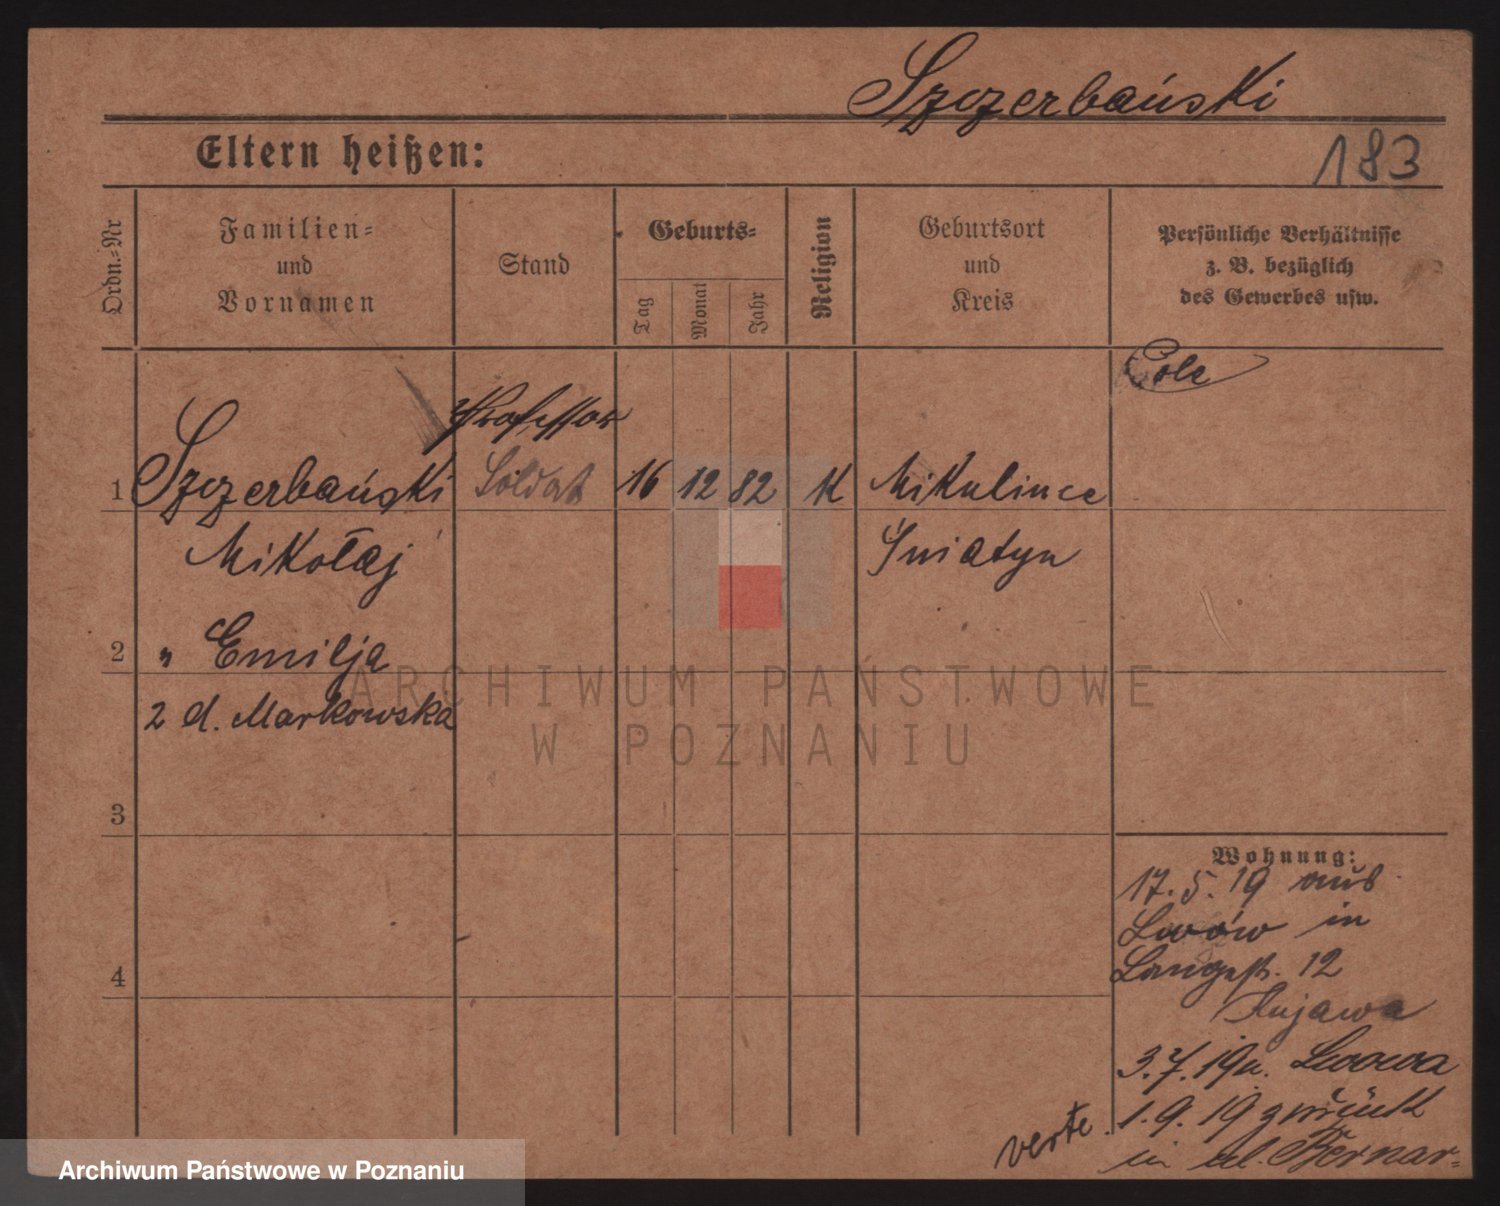 Szczerbański
Eltern heißen:
183
Ordn.-Nr
Familien-
und
Vornamen
Stand
Geburts-
Tag
Monat
Jahr
Religion
Geburtsort
und
Kreis
Persönliche Verhältnisse
z. B. bezüglich
des Gewerbes usw.
Pole
Professor
1 Szczerbański Soldat 16 12 82 K Mikulince
Mikołaj Śniatyn
2 " Emilja
2 d. Markowska
3
4
Wohnung:
17. 5. 19 aus
Lwów in
Langestr. 12
Kujawa
3. 7. 19 n. Lwowa
1. 9. 19 zurück
in al. Bernar-
verte.
ARCHIWUM PAŃSTWOWE
W POZNANIU
Archiwum Państwowe w Poznaniu